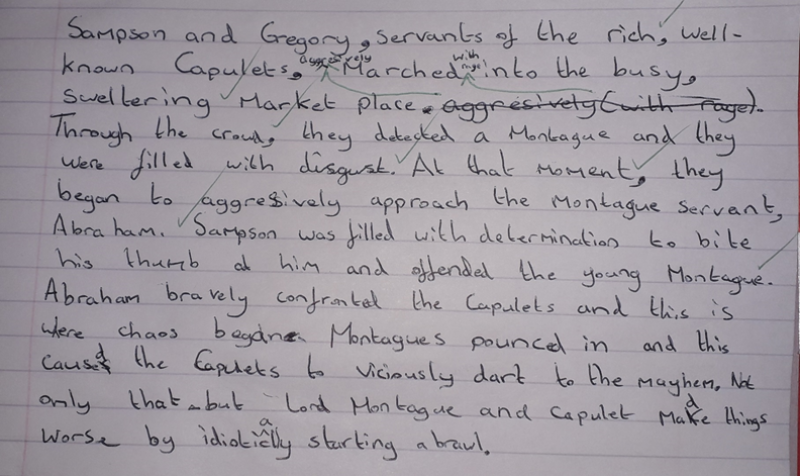 Sampson and Gregory, servants of the rich, well-
known Capulets, aggressively Marched with rage into the busy,
sweltering Market place. aggresively (with rage).
Through the crowd, they detected a Montague and they
were filled with disgust. At that moment, they
began to aggressively approach the Montague servant,
Abraham. Sampson was filled with determination to bite
his thumb at him and offended the young Montague.
Abraham bravely confronted the Capulets and this is
were chaos began. Montagues pounced in and this
caused the Capulets to viciously dart to the mayhem. Not
only that but Lord Montague and Capulet made things
worse by idiotically starting a brawl.